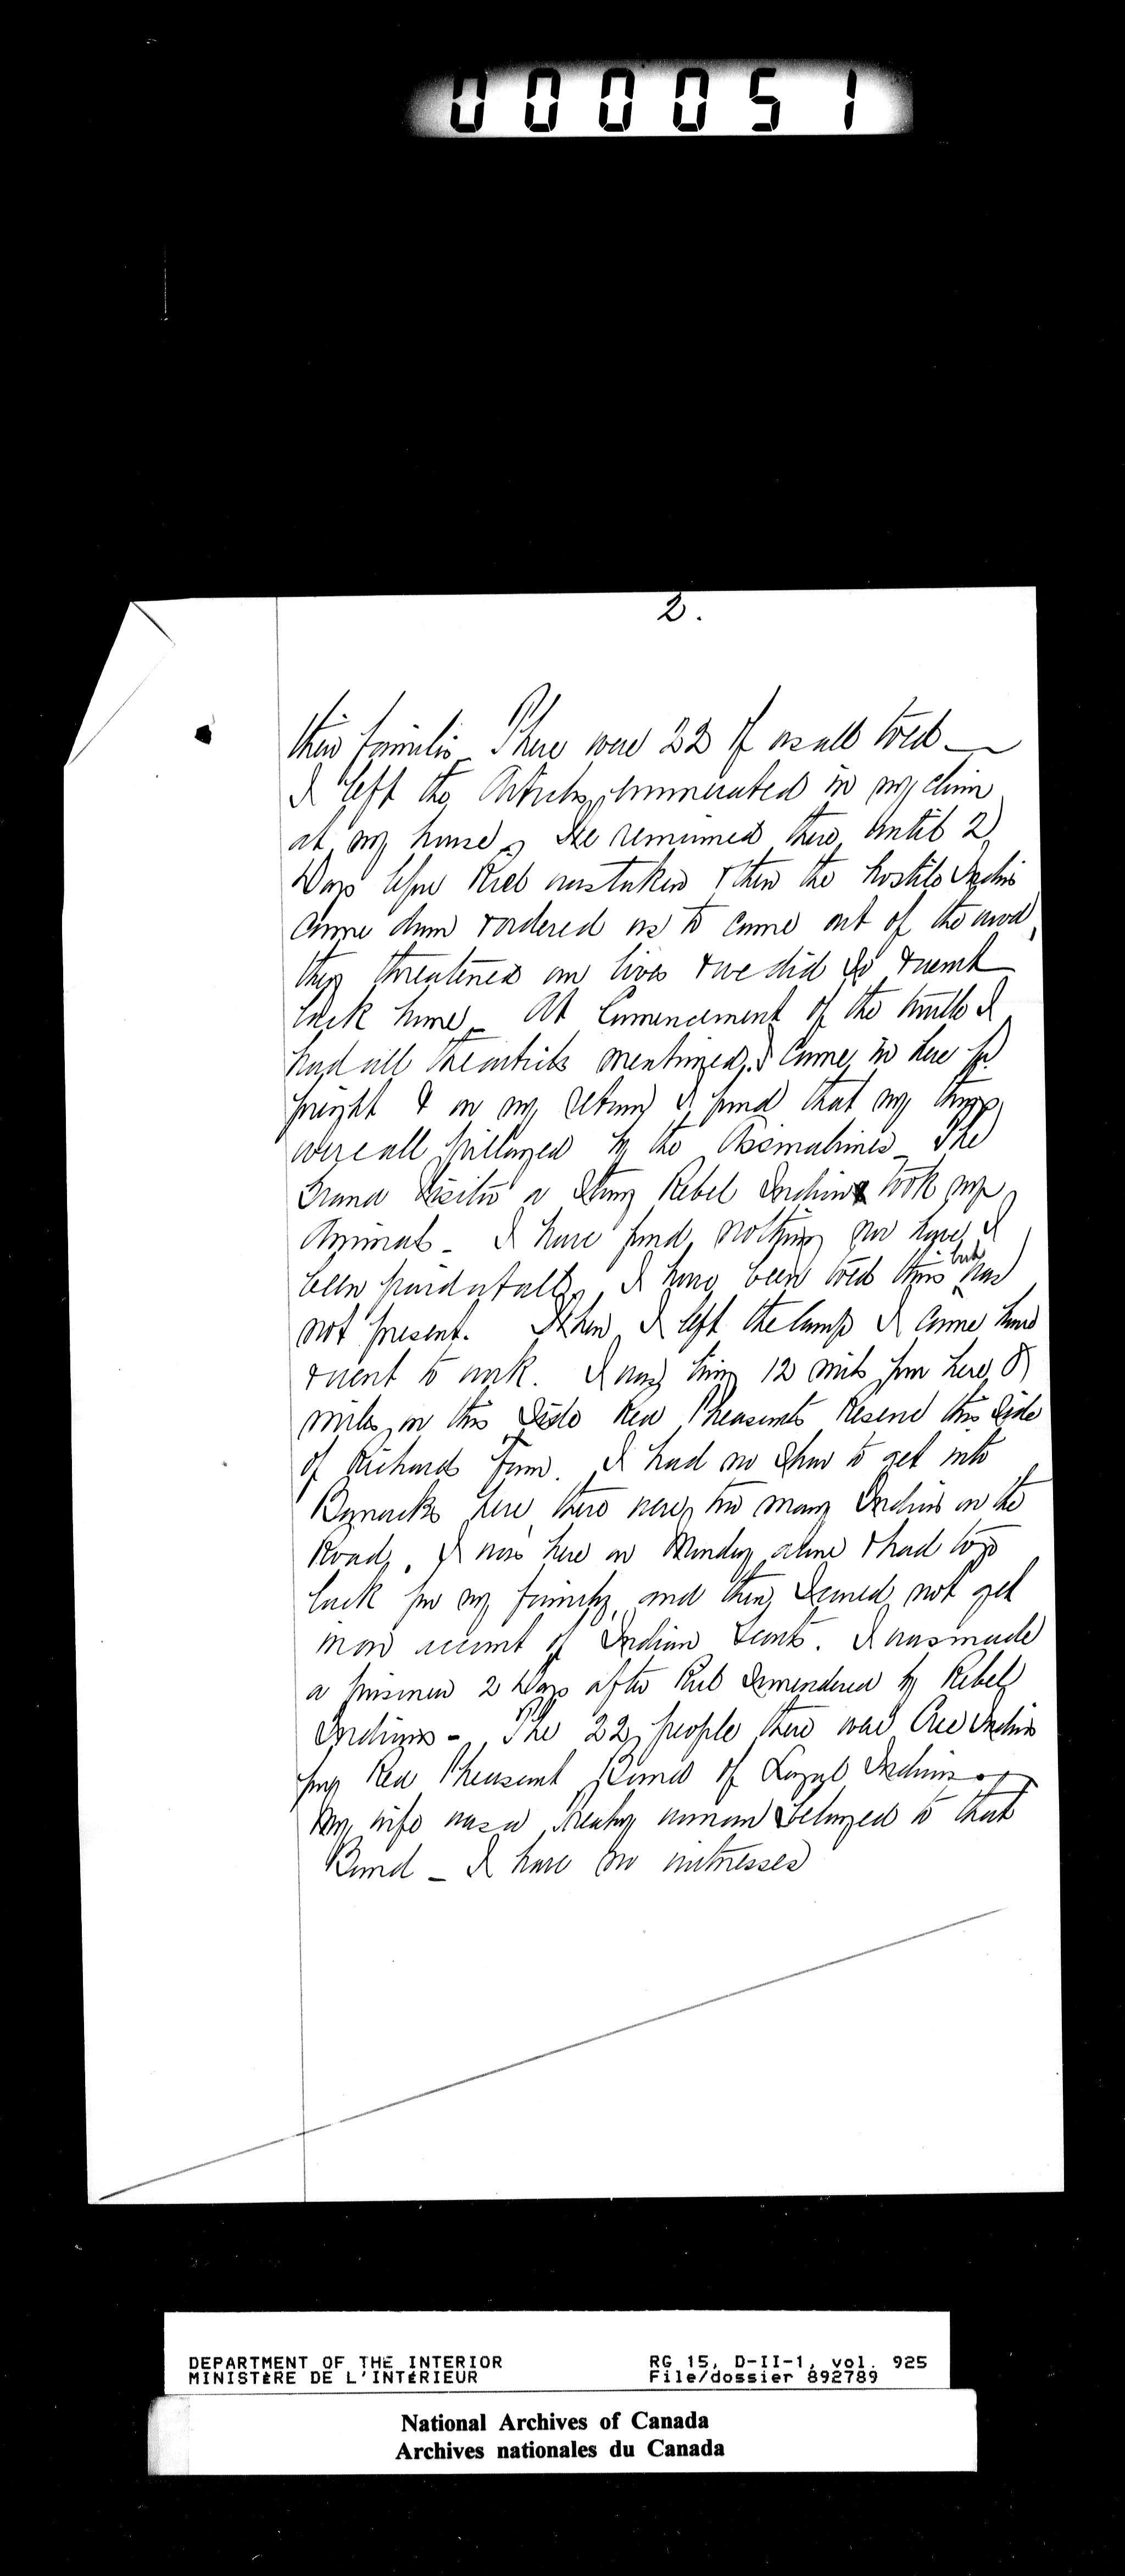 000051
2.
their families There were 22 of us all told —
I left the Articles enumerated in my claim
at my house, We remained there until 2
Days before Riel was taken & then the hostile Indians
came down & ordered us to come out of the wood,
they threatened our lives & we did so & went
back home – At Commencement of the trouble I
had all the articles mentioned, I came in here for
freight & on my return I found that my things
were all pillaged by the Assiniboines – The
Grand a Rebel Indian took my
Animal – I have found nothing nor have I
been paid at all, I have been told this but was
not present. When I left the Camp I came home
& went to work. I was living 12 miles from here, 8
miles on this side Red Pheasants Reserve this side
of Richards Farm. I had no show to get into
Barracks here there were too many Indians on the
Road, I was here on Monday alone & had to go
back for my family and then I could not get
in on account of Indian Scouts. I was made
a prisoner 2 Days after Riel surrendered by Rebel
Indians – The 22 people there were Cree Indians
from Red Pheasant Band of Loyal Indians
My wife was a Treaty woman belonged to that
Band – I have no witnesses
DEPARTMENT OF THE INTERIOR
MINISTÈRE DE L'INTÉRIEUR
RG 15, D-II-1, vol. 925
File/dossier 892789
National Archives of Canada
Archives nationales du Canada